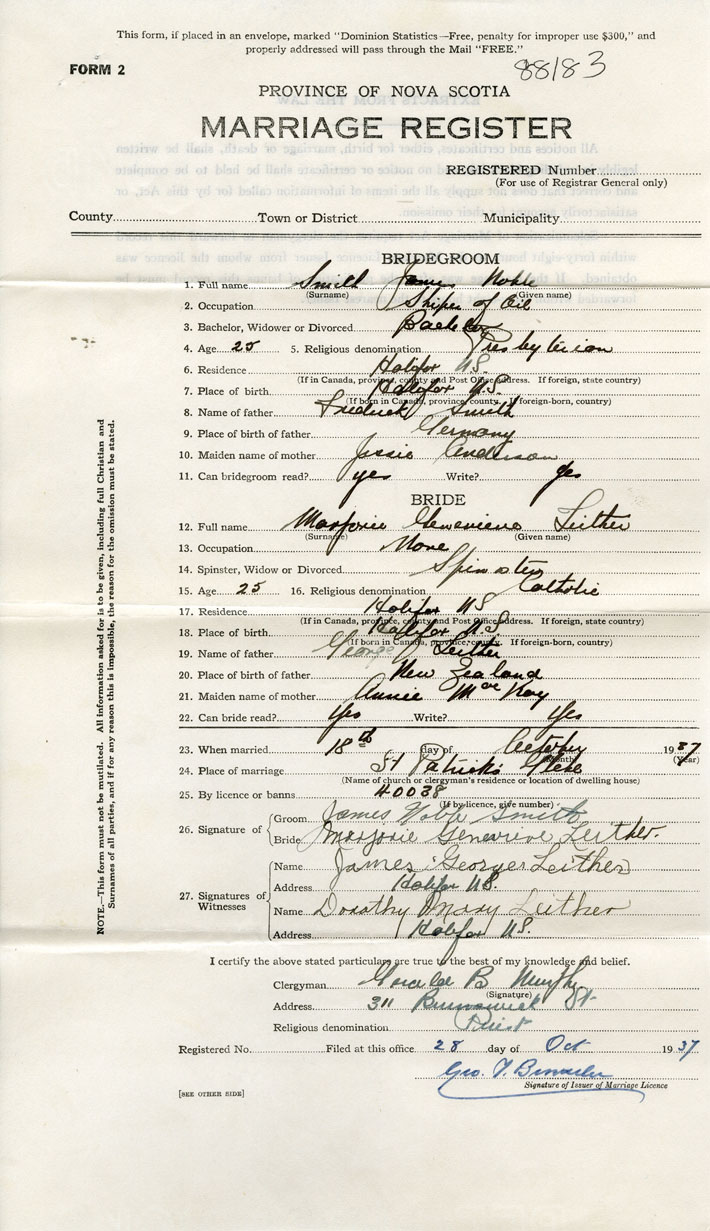 This form, if placed in an envelope, marked "Dominion Statistics—Free, penalty for improper use $300," and
properly addressed will pass through the Mail "FREE."
FORM 2
88183
PROVINCE OF NOVA SCOTIA
MARRIAGE REGISTER
REGISTERED Number
(For use of Registrar General only)
County Town or District Municipality
BRIDEGROOM
1. Full name Smith James Noble
(Surname) (Given name)
2. Occupation Shiper of Oil
3. Bachelor, Widower or Divorced Bachelor
4. Age 25 5. Religious denomination Presbyterian
6. Residence Halifax N.S.
(If in Canada, province, county and Post Office address. If foreign, state country)
7. Place of birth Halifax N.S.
(If born in Canada, province, county. If foreign-born, country)
8. Name of father Fredrick Smith
9. Place of birth of father Germany
10. Maiden name of mother Jessie Anderson
11. Can bridegroom read? yes Write? yes
BRIDE
12. Full name Marjorie Genevieve Leither
(Surname) (Given name)
13. Occupation None
14. Spinster, Widow or Divorced Spinster
15. Age 25 16. Religious denomination Catholic
17. Residence Halifax NS
(If in Canada, province, county and Post Office address. If foreign, state country)
18. Place of birth Halifax N.S
(If born in Canada, province, county. If foreign-born, country)
19. Name of father George Leither
20. Place of birth of father New Zealand
21. Maiden name of mother Annie MacKay
22. Can bride read? Yes Write? Yes
23. When married 18th day of October 1937
(Month) (Year)
24. Place of marriage St Patrick's Glebe
(Name of church or clergyman's residence or location of dwelling house)
25. By licence or banns 40038
(If by licence, give number)
26. Signature of Groom James Noble Smith
Bride Marjorie Genevieve Leither.
27. Signatures of Witnesses
Name James George Leither
Address Halifax N.S.
Name Dorothy Mary Leither
Address Halifax N.S.
I certify the above stated particulars are true to the best of my knowledge and belief.
Clergyman Gerald B Murphy
(Signature)
Address 311 Brunswick St.
Religious denomination Priest
Registered No. Filed at this office 28 day of Oct 1937
Geo. T.
Signature of Issuer of Marriage Licence
[SEE OTHER SIDE]
NOTE.—This form must not be mutilated. All information asked for is to be given, including full Christian and
Surnames of all parties, and if for any reason this is impossible, the reason for the omission must be stated.